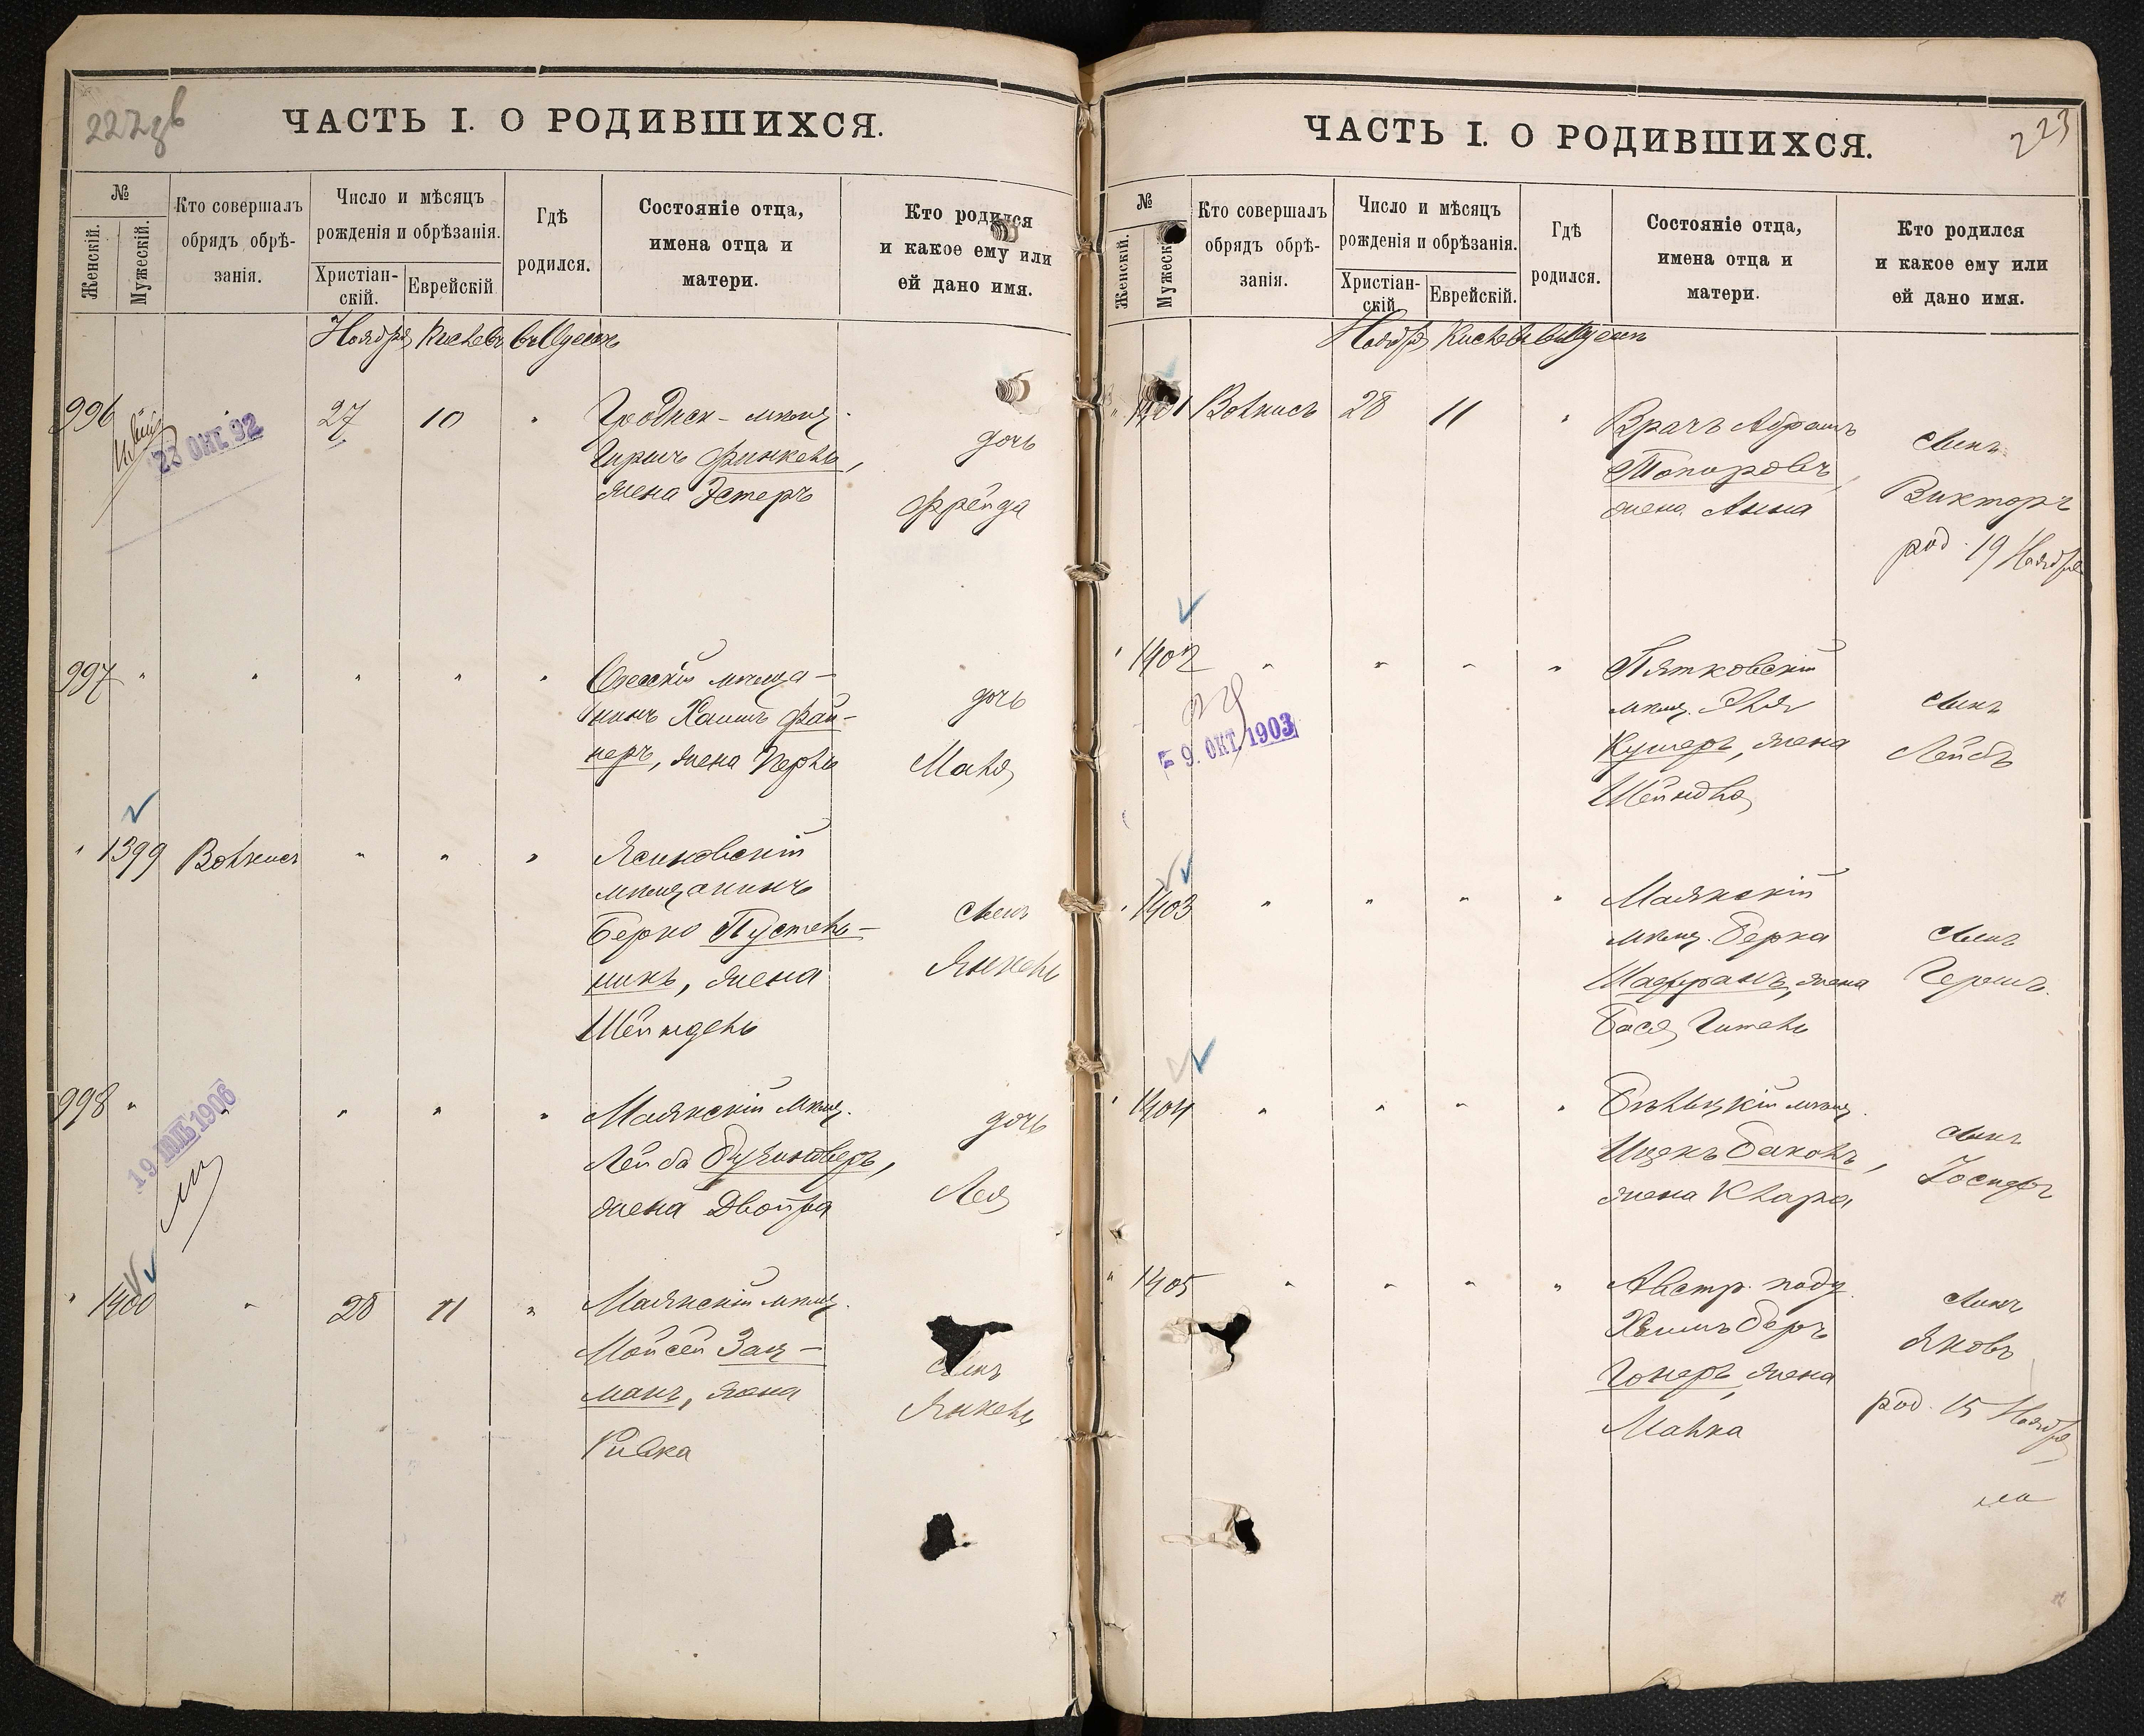 ЧАСТЬ I. О РОДИВШИХСЯ.
№
Женскій.
Мужескій.
Кто совершалъ
обрядъ обрѣ-
занія.
Число и мѣсяцъ
рожденія и обрѣзанія.
Христіан-
скій.
Еврейскій.
Гдѣ
родился.
Состояніе отца,
имена отца и
матери.
Кто родился
и какое ему или
ей дано имя.
Ноября Кислевъ въ Одессѣ
996
23 ОКТ. 92
27 10 "
Гроднен- мѣщ.
Гиршъ Финкель,
жена Эстеръ
дочь
Фрейда
997 " " " " "
Одесскій мѣща-
нинъ Хаимъ Фай-
неръ, жена Перль
дочь
Маля
" 1399 Волкисъ " " "
Ясиновскій
мѣщанинъ
Берко Пустель-
никъ, жена
Шейндель
сынъ
Янкель
998 " " " " "
19 ІЮЛЬ 1906
Маякскій мѣщ.
Лейба
жена Двойра
дочь
Лея
" 1400 " 28 11 "
Маякскій мѣщ.
Мойсей Зац-
манъ, жена
Ривка
сынъ
Янкель
ЧАСТЬ I. О РОДИВШИХСЯ.
223
№
Женскій.
Мужеск
Кто совершалъ
обрядъ обрѣ-
занія.
Число и мѣсяцъ
рожденія и обрѣзанія.
Христіан-
скій.
Еврейскій.
Гдѣ
родился.
Состояніе отца,
имена отца и
матери.
Кто родился
и какое ему или
ей дано имя.
Ноября Кислевъ въ Одессѣ
" 1401 Волкисъ 28 11 "
Врачъ Абрамъ
Топоровъ,
жена Анна
сынъ
Викторъ
род. 19 Ноября
" 1402 " " " "
9. ОКТ. 1903
Пятковскій
мѣщ. Эля
Кушеръ, жена
Шейндля
сынъ
Лейбъ
" 1403 " " " "
Маякскій
мѣщ. Берка
Шафранъ, жена
Бася Гитель
сынъ
Гершъ.
" 1404 " " " "
Бѣльцкій мѣщ.
Ицекъ Баконъ,
жена Клара
сынъ
Іосифъ
" 1405 " " " "
Австр. подд.
Хаимъ Беръ
Гонеръ, жена
Малка
сынъ
Яковъ
род. 15 Ноября